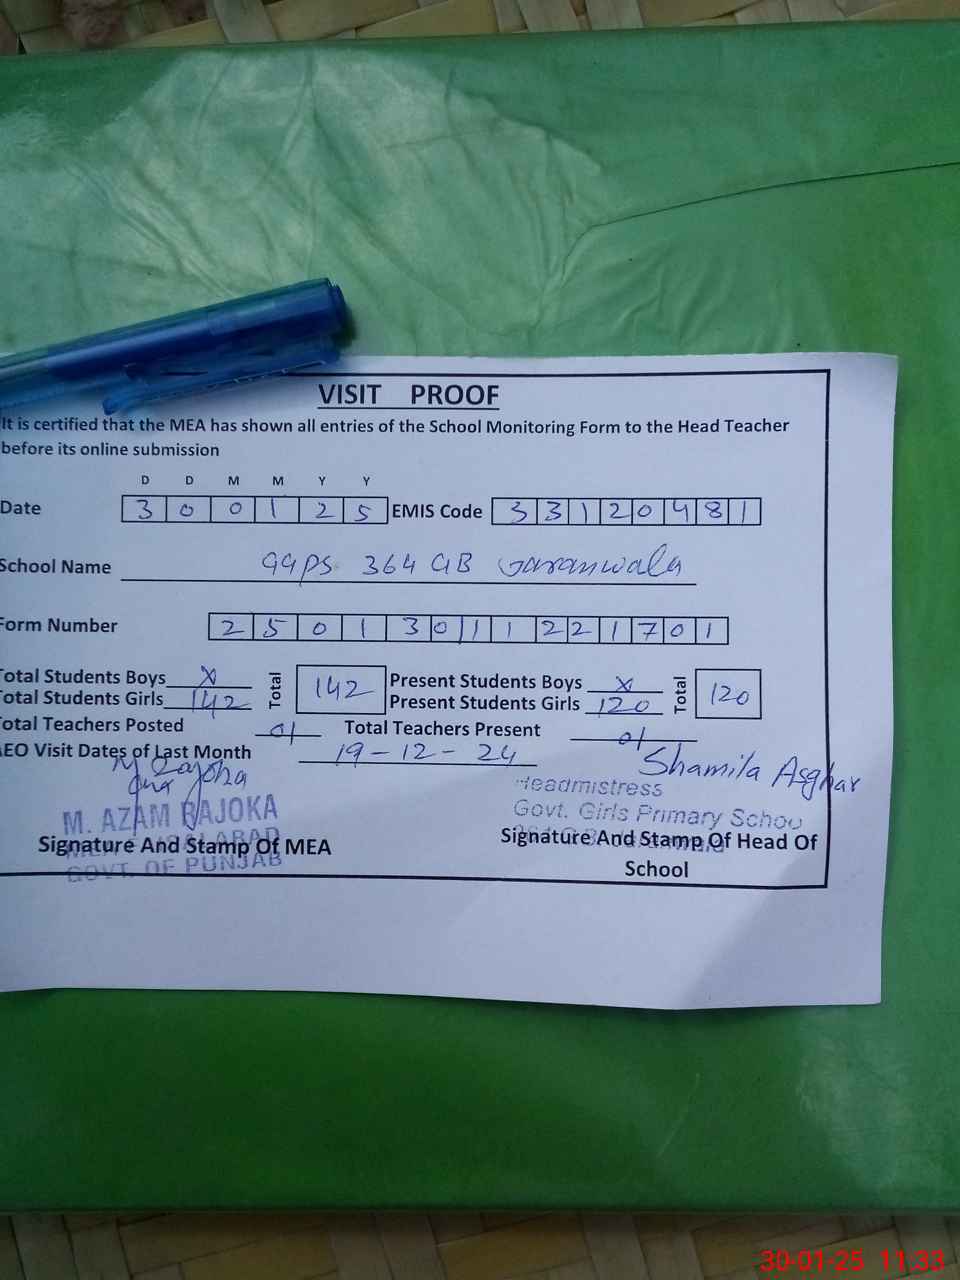 VISIT PROOF
It is certified that the MEA has shown all entries of the School Monitoring Form to the Head Teacher
before its online submission
D D M M Y Y
Date 3 0 0 1 2 5 EMIS Code 3 3 1 2 0 4 8 1
School Name GGPS 364 GB
Form Number 2 5 0 1 3 0 1 1 2 2 1 7 0 1
Total Students Boys x Total 142 Present Students Boys x Total 120
Total Students Girls 142 Present Students Girls 120
Total Teachers Posted 01 Total Teachers Present 01
AEO Visit Dates of Last Month 19-12-24
Shamila Asghar
M. AZAM BAJOKA
GOVT. OF PUNJAB
Signature And Stamp Of MEA
Headmistress
Govt. Girls Primary Schoo
Signature And Stamp Of Head Of
School
30-01-25 11:33